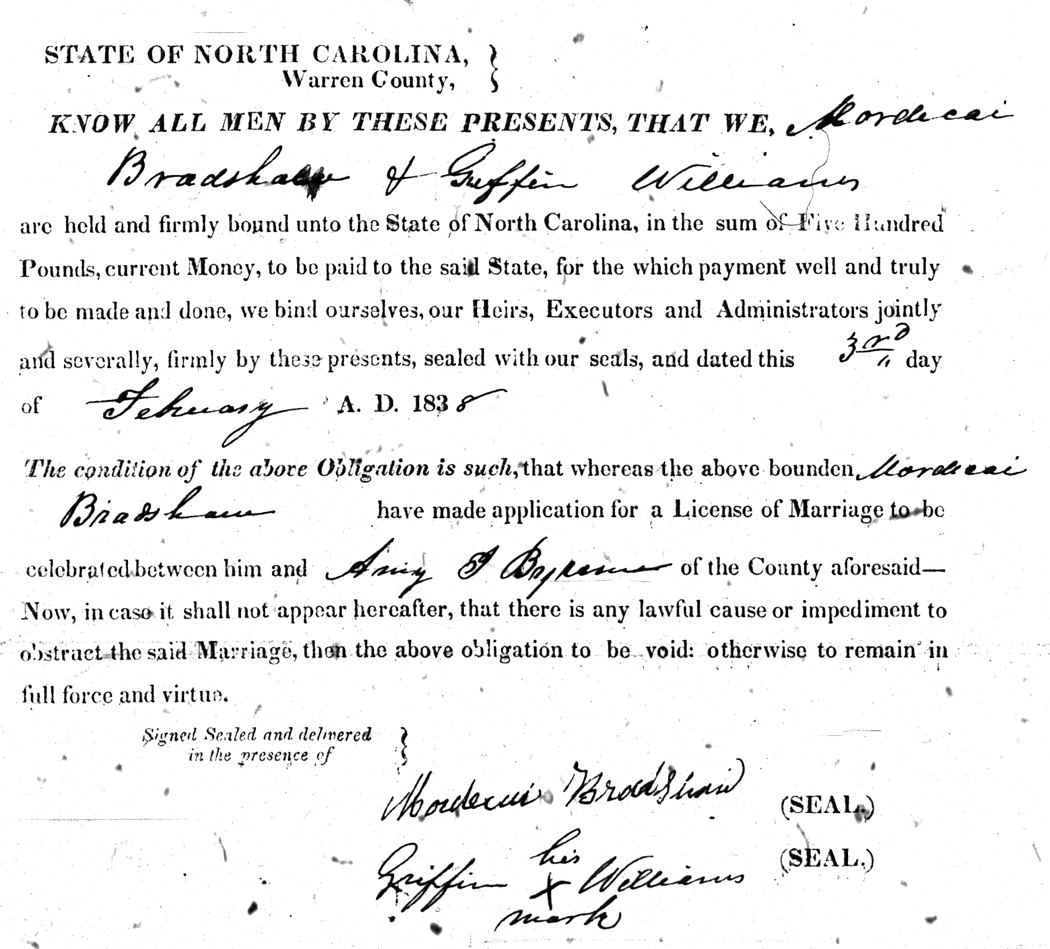 STATE OF NORTH CAROLINA,
Warren County,
KNOW ALL MEN BY THESE PRESENTS, THAT WE, Mordecai
Bradshaw & Griffin Williams
are held and firmly bound unto the State of North Carolina, in the sum of Five Hundred
Pounds, current Money, to be paid to the said State, for the which payment well and truly
to be made and done, we bind ourselves, our Heirs, Executors and Administrators jointly
and severally, firmly by these presents, sealed with our seals, and dated this 3rd day
of February A. D. 1838
The condition of the above Obligation is such, that whereas the above bounden Mordecai
Bradshaw have made application for a License of Marriage to be
celebrated between him and Amy of the County aforesaid—
Now, in case it shall not appear hereafter, that there is any lawful cause or impediment to
obstract the said Marriage, then the above obligation to be void: otherwise to remain in
full force and virtue.
Signed Sealed and delivered
in the presence of
Mordecai Bradshaw (SEAL.)
his
Griffin X Williams (SEAL.)
mark